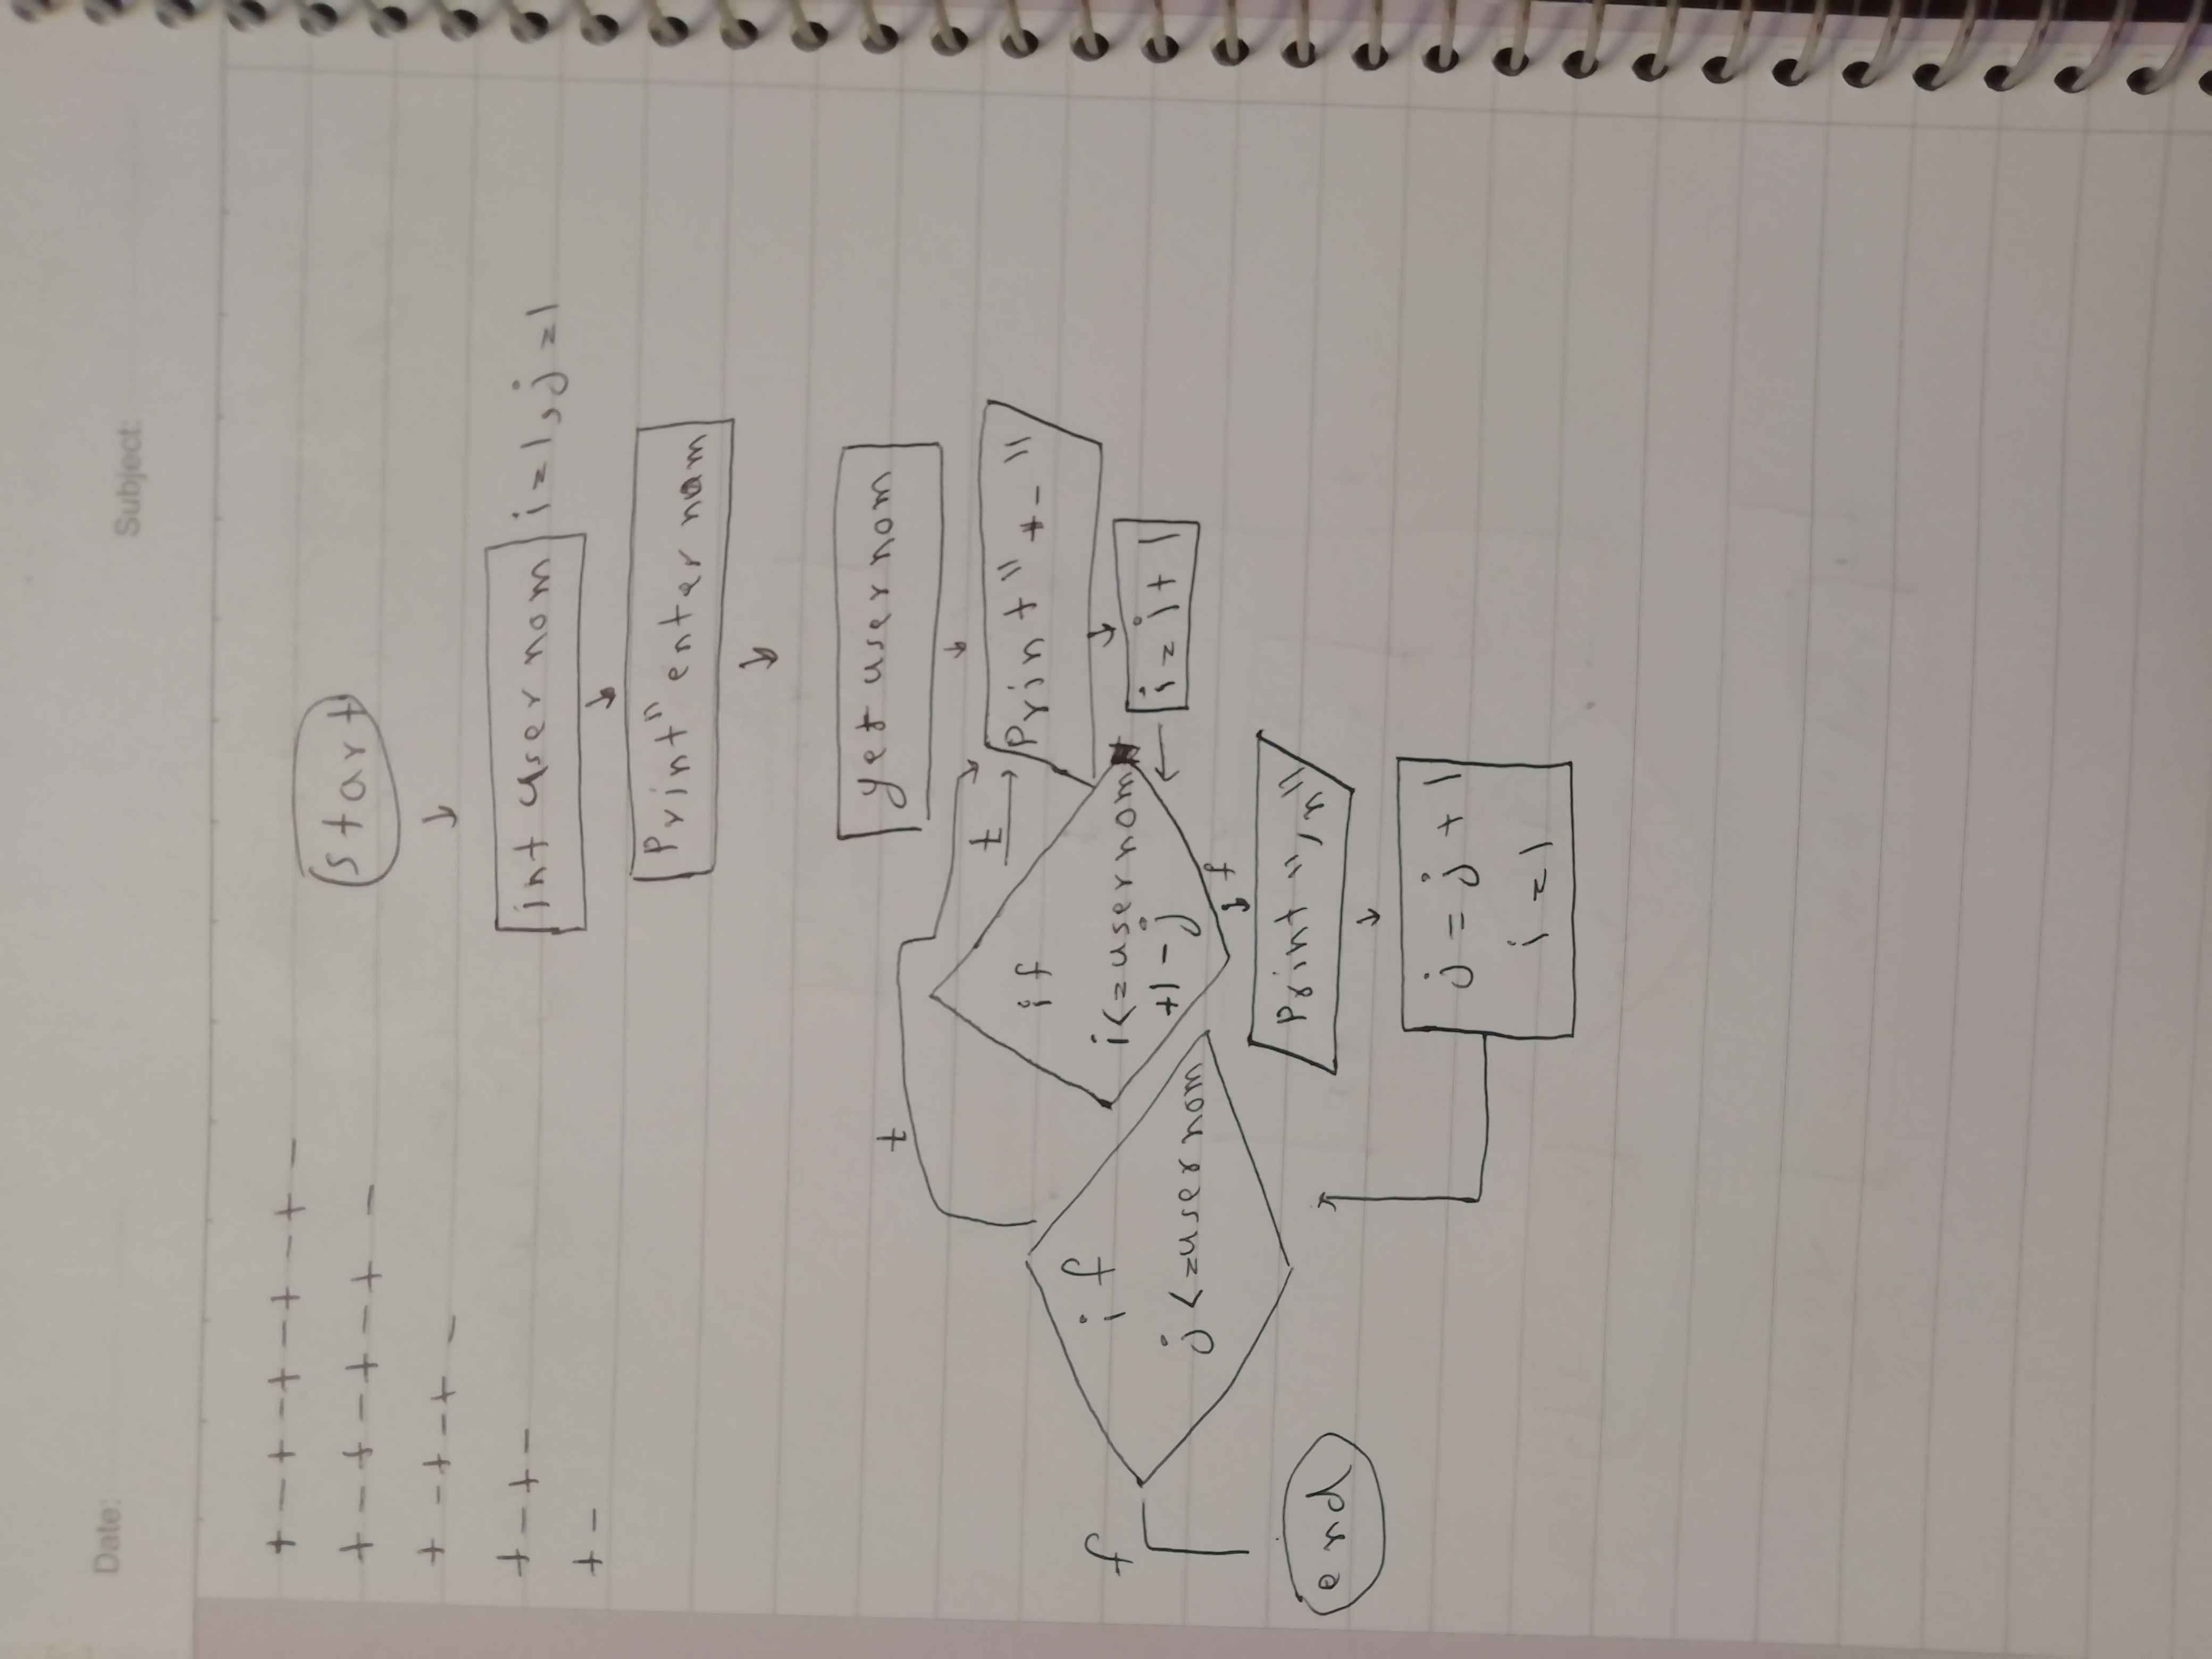 Date:
Subject:
+ - + - + - + - + -
+ - + - + - + -
+ - + - + -
+ - + -
+ -
Start
int user nom i=1,j=1
Print" enter nom
get user nom
Print" +- "
i=i+1
t
t
if
i<=user nom
+1-j
f
Print "/n"
j=j+1
i=1
if
j<=user nom
f
end